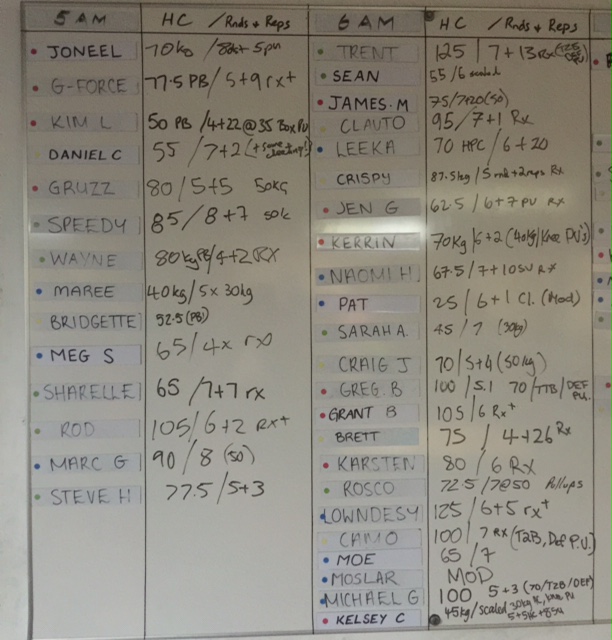 5 AM HC /Rnds + Reps
JONEEL 70kg / 5pu
G-FORCE 77.5 PB / 5+9 rx+
KIM L 50 PB /4+22@35 Box PU
DANIEL C 55 / 7+2
GRUZZ 80/5+5 50kg
SPEEDY 85/8+7 50k
WAYNE 80kg PB/4+2 RX
MAREE 40kg/5x 30kg
BRIDGETTE 92.5 (PB)
MEG S 65/4x rx
SHARELLE 65 /7+7 rx
ROD 105/6+2 Rx+
MARC G 90 / 8 (50)
STEVE H 77.5 /5+3
6 AM HC /Rnds + Reps
TRENT 125 / 7+13 Rx
SEAN 55/6 scaled
JAMES.M 75/7+20(50)
CLAUTO 95/7+1 Rx
LEEKA 70 HPC / 6+20
CRISPY 87.5kg / 5 rnd +2reps Rx
JEN G 62.5 / 6+7 PU RX
KERRIN 70kg/6+2 (40kg/Knee PU's)
NAOMI H 67.5/7+10SU RX
PAT 25 / 6+1 Cl. (Mod)
SARAH A. 45 / 7 (30kg)
CRAIG J 70/5+4 (50kg)
GREG. B 100 / 5.1 70/TTB/DEF P.U.
GRANT B 105/6 Rx+
BRETT 75 / 4+26 Rx
KARSTEN 80 / 6 Rx
ROSCO 72.5 /7@50 Pullups
LOWNDESY 125/6+5 rx+
CAMO 100/ 7 RX (T2B, Def P.U.)
MOE 65/7
MOSLAR MOD
MICHAEL G 100 5+3 (70/T2B/DEF)
KELSEY C 45kg/scaled 30kg